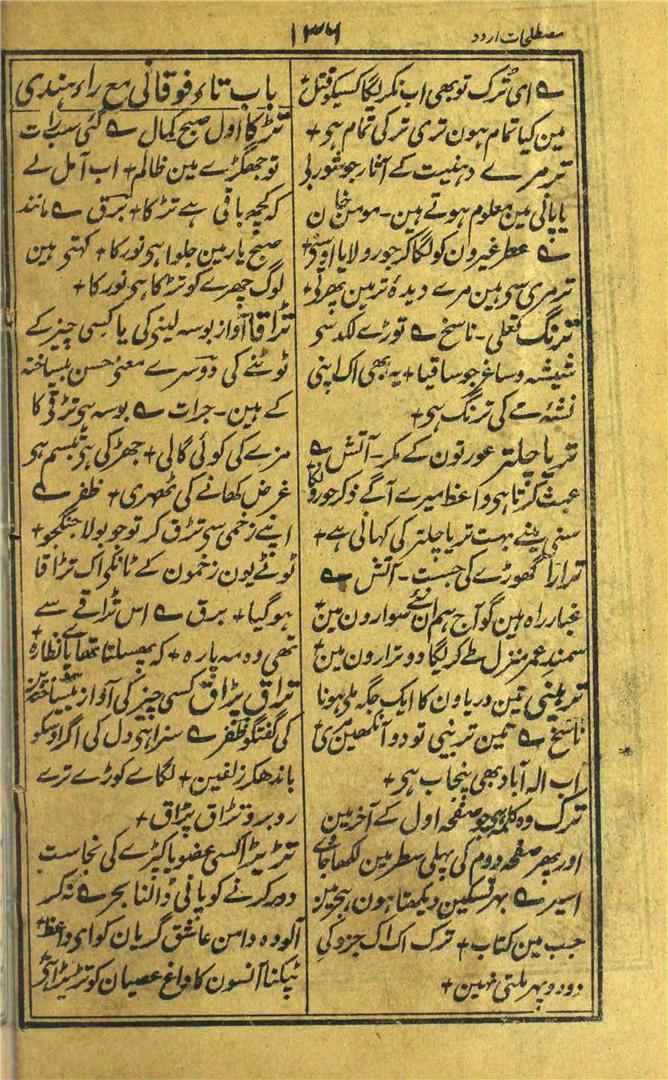 مصطلحات اردو
۱۳۶
ے ای ترک تو بھی اب نکر لگا کسیکو قتل
مین کیا تمام ہون تری ترکی تمام ہی +
ترمرے دہنیت کے آثار جو شوربی
یا پانی مین معلوم ہوتے ہین۔ مومن خان
ے عطر غیرون کو لگا کر جو رولایا اوسنی
ترمری سی ہین مرے دیدۂ تر مین پھرتی +
ترنگ تعلی۔ ناسخ ے توڑے لکد سی
شیشہ و ساغر جو ساقیا + یہ بھی اک اپنی
نشہ ے کی ترنگ ہی +
تریا چلتر عورتون کے مکر۔ آتش ے
عبث کرتا ہی واعظ میرے آگے ذکر حورونکا
سنی ہینے بہت تریا چلتر کی کہانی ہے +
ترارا گھوڑے کی جست۔ آتش ے
غبار راہ ہین گو آج ہم ان سوارون مین
سمند عمر منزل طے کریگا دو ترارون مین
تربینی تین دریاون کا ایک جگہ ملی ہونا
ناسخ ے تین تربینی تو دو آنکھین مری
اب الہ آباد بھی پنجاب ہی +
ترک وہ کلمہ ہی جو صفحہ اول کے آخر مین
اور پھر صفحہ دوم کی پہلی سطر مین لکھا جائے
اسیر ے بہر تسکین دیکھتا ہون ہجر مین
جب مین کتاب + ترک اک اک جزو کی
دو دو پہر ملتی نہین +
باب تاء فوقانی مع راء ہندی
تڑکا اول صبح کمال ے گئی سب رات
تو جھگڑے مین ظالم + اب آ مل لے
کہ کچھ باقی ہے تڑکا + برق ے مانند
صبح یار مین جلوا ہی نور کا + کہتی ہین
لوگ چہرے کو تڑکا ہی نور کا +
تڑاقا آواز بوسہ لینی کی یا کسی چیز کے
ٹوٹنے کی دوسرے معنی حسن بیساختہ
کے ہین۔ جرات ے بوسہ ہی تڑاقی کا
مزے کی کوئی گالی + جھڑکی ہی تبسم ہی
غرض کھانے کی ٹھہری + ظفر ے
اپنے زخمی سی تڑق کر تو جو بولا جنگجو +
ٹوٹے یون زخمون کے ٹانکی اک تڑاقا
ہو گیا + برق ے اس تڑاقے سے
تھی وہ مہ پارہ + کہ پھسلتا تھا پاے نظارہ +
تڑاق پڑاق کسی چیز کی آواز بیساختہ پن
کی گفتگو ظفر ے سزا ہی دل کی اگر اوسکو
باندھکر زلفین + لگاے کوڑے ترے
روبرو تڑاق پڑاق +
تڑیڑا کسی عضو یا کپڑے کی نجاست
دور کرنے کو پانی ڈالنا بحر ے نہ کر
آلودہ دامن عاشق گریان کو ای واعظ
ٹپکنا آنسون کا داغ عصیان کو تڑیڑا ہی